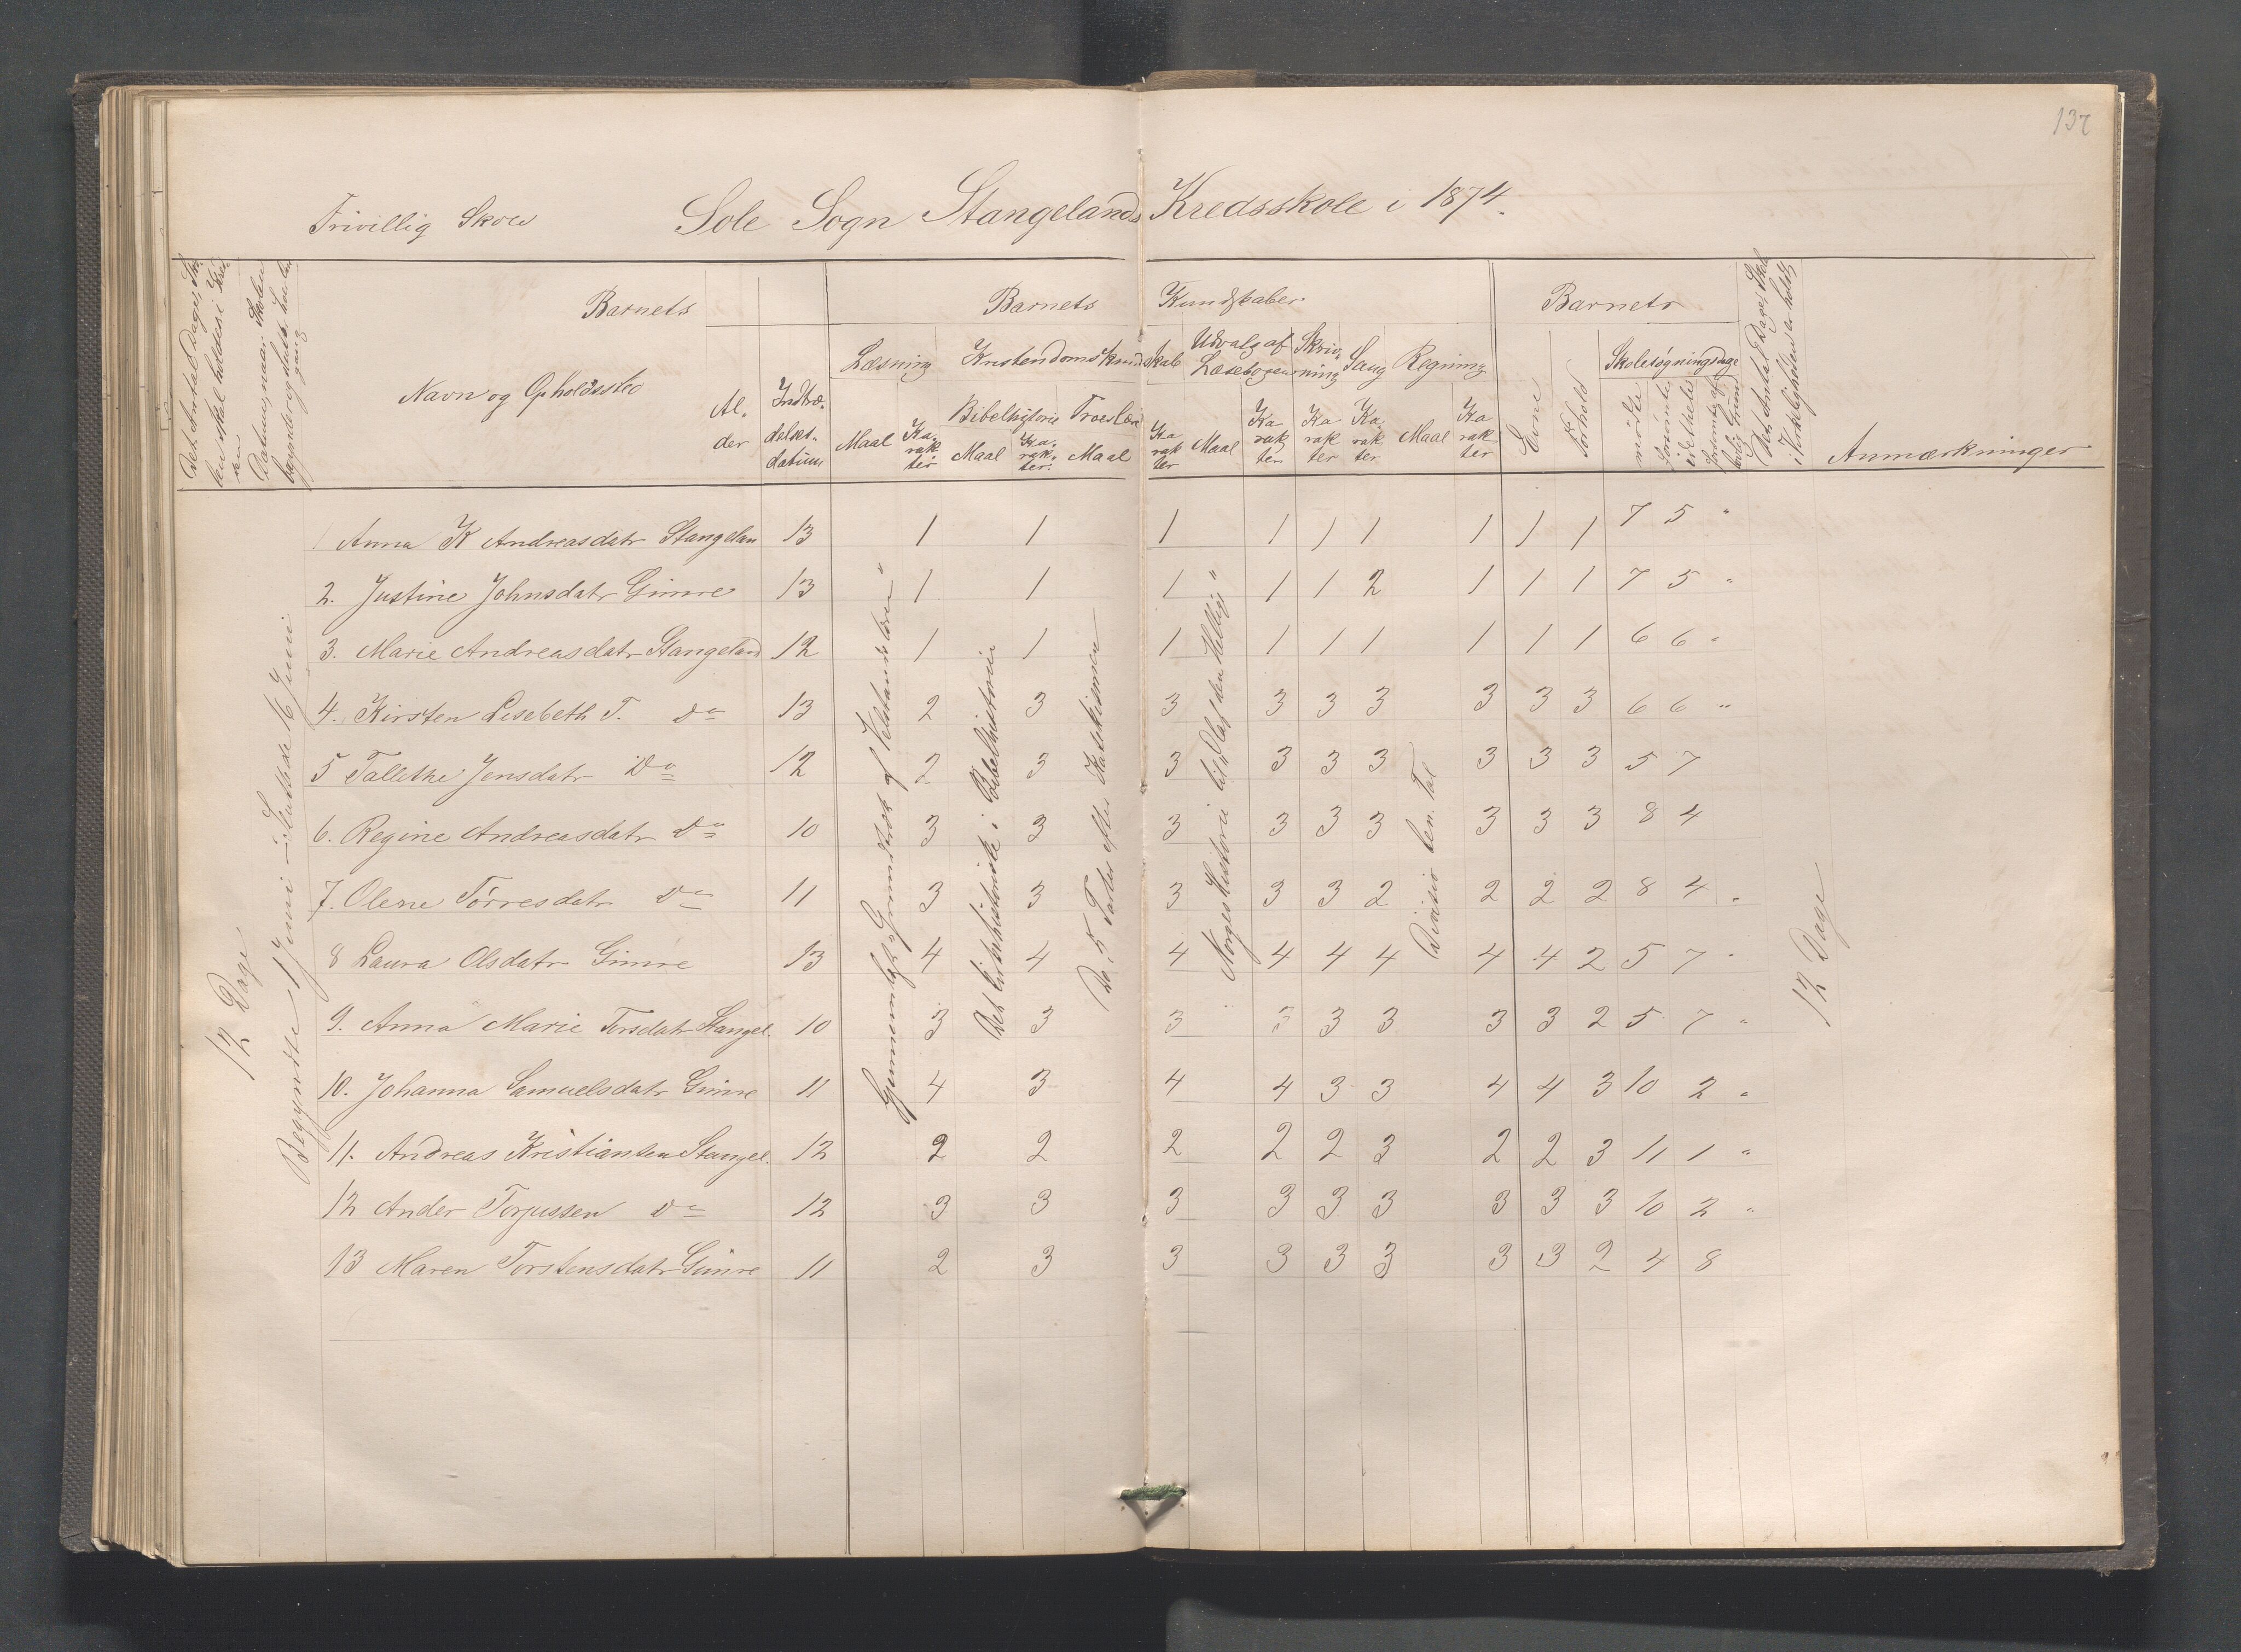 137
Frivillig Skole
Sole Sogn Stangelands Kredsskole i 1874.
Barnets
Barnets Kundskaber.
Barnets
Navn og Opholdssted
Al-
der
Indtræ-
delses-
datum
Læsning
Kristendomskundskab
Udvalg af
Læsebogen
Skriv-
ning
Sang
Regning
Evne
Forhold
Skolesøgningsdage
Bibelhistorie
Troeslære
Maal
Ka-
rak
ter
Maal
Ka-
rak-
ter.
Maal
Ka
rak
ter
Maal
Ka
rak
ter
Ka
rak
ter
Ka
rak
ter
Maal
Ka
rak
ter
mødte
forsømte
Anmærkninger
12 Dage
Begyndte 1 Juni - Sluttede 16 Juni
Det kirkehistoriske i Bibelhistorien
De 5 Parter efter Katekismen
Norges Historie til "Olaf den Hellig"
Division ben. Tal
12 Dage
1 Anna K Andreasdatr Stangelan 13 1 1 1 1 1 1 1 1 1 7 5 "
2. Justine Johnsdatr Gimre 13 1 1 1 1 1 2 1 1 1 7 5 "
3. Marie Andreasdatr Stangeland 12 1 1 1 1 1 1 1 1 1 6 6 "
4. Kirsten Lisebeth T. Do 13 2 3 3 3 3 3 3 3 3 6 6 "
5 Tallethe Jensdatr Do 12 2 3 3 3 3 3 3 3 3 5 7
6. Regine Andreasdatr Do 10 3 3 3 3 3 3 3 3 3 8 4
7. Olene Tórresdatr Do 11 3 3 3 3 3 2 2 2 2 8 4 "
8 Laura Olsdatr Gimre 13 4 4 4 4 4 4 4 4 2 5 7 "
9. Anna Marie Torsdatr Stangel. 10 3 3 3 3 3 3 3 3 2 5 7 "
10. Johanna Samuelsdatr Gimre 11 4 3 4 4 3 3 4 4 3 10 2 "
11. Andreas Kristiansen Stangel. 12 2 2 2 2 2 3 2 2 3 11 1 "
12 Ander Torjussen Do 12 3 3 3 3 3 3 3 3 3 10 2 "
13 Maren Torstensdatr Gimre 11 2 3 3 3 3 3 3 3 2 4 8